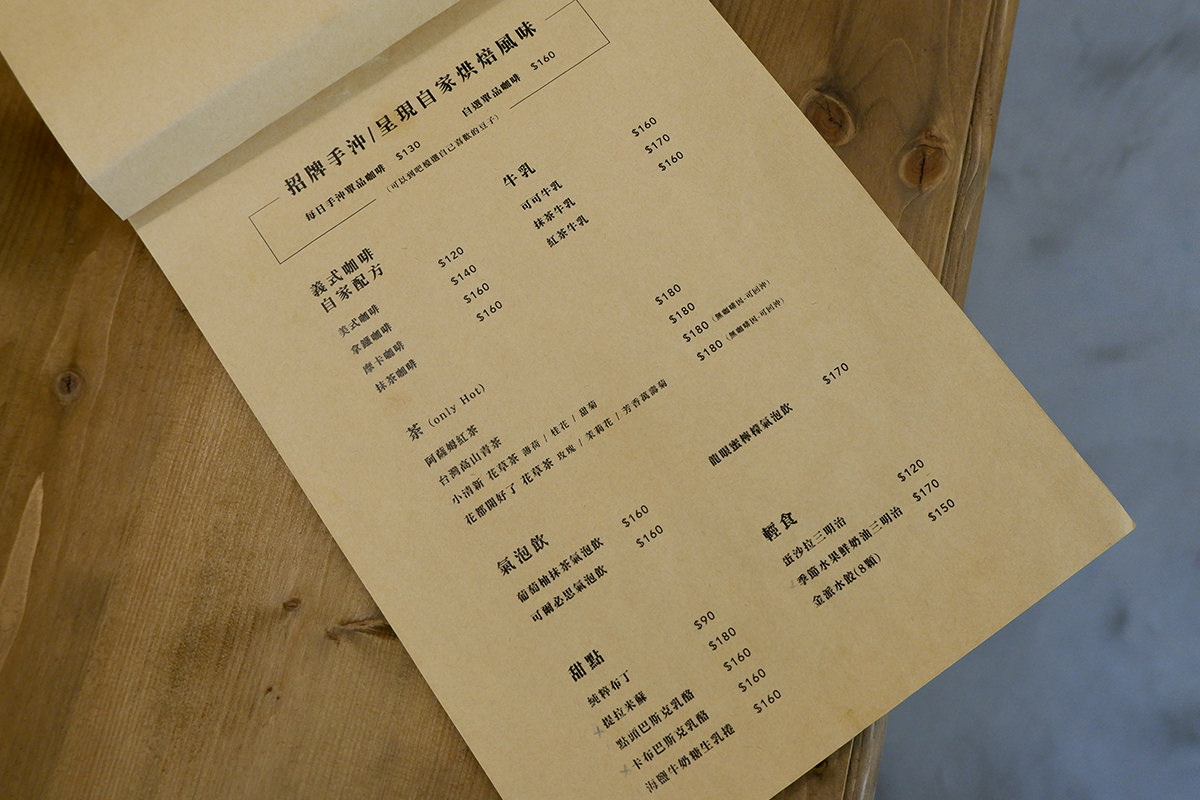 招牌手沖/呈現自家烘焙風味
每日手沖單品咖啡 $130
自選單品咖啡 $160
(可以到吧檯選自己喜歡的豆子)
義式咖啡
自家配方
美式咖啡 $120
拿鐵咖啡 $140
摩卡咖啡 $160
抹茶咖啡 $160
牛乳
可可牛乳 $160
抹茶牛乳 $170
紅茶牛乳 $160
茶 (only Hot)
阿薩姆紅茶 $180
台灣高山青茶 $180
小清新 花草茶 薄荷 / 桂花 / 甜菊 $180 (無咖啡因·可回沖)
花都開好了 花草茶 玫瑰 / 茉莉花 / 芳香萬壽菊 $180 (無咖啡因·可回沖)
氣泡飲
葡萄柚抹茶氣泡飲 $160
可爾必思氣泡飲 $160
龍眼蜜檸檬氣泡飲 $170
甜點
純粹布丁 $90
提拉米蘇 $180
點頭巴斯克乳酪 $160
卡布巴斯克乳酪 $160
海鹽牛奶糖生乳捲 $160
輕食
蛋沙拉三明治 $120
季節水果鮮奶油三明治 $170
金派水餃(8顆) $150